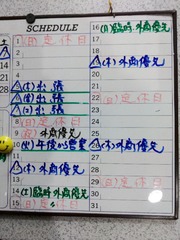 SCHEDULE
1 (日) 定休日
2
3
4
5 (木) 出張
6 (金) 出張
7 (土) 出張
8 (日) 定休日
9 (月) 外商優先
10 (火) 午後から営業
11
12 (木) 外商優先
13
14 (土) 臨時 外商優先
15 (日) 定休日
16 (月) 臨時 外商優先
17
18
19 (木) 外商優先
20
21
22 (日) 定休日
23
24
25
26 (木) 外商優先
27
28
29 (日) 定休日
30
31
14
21
28